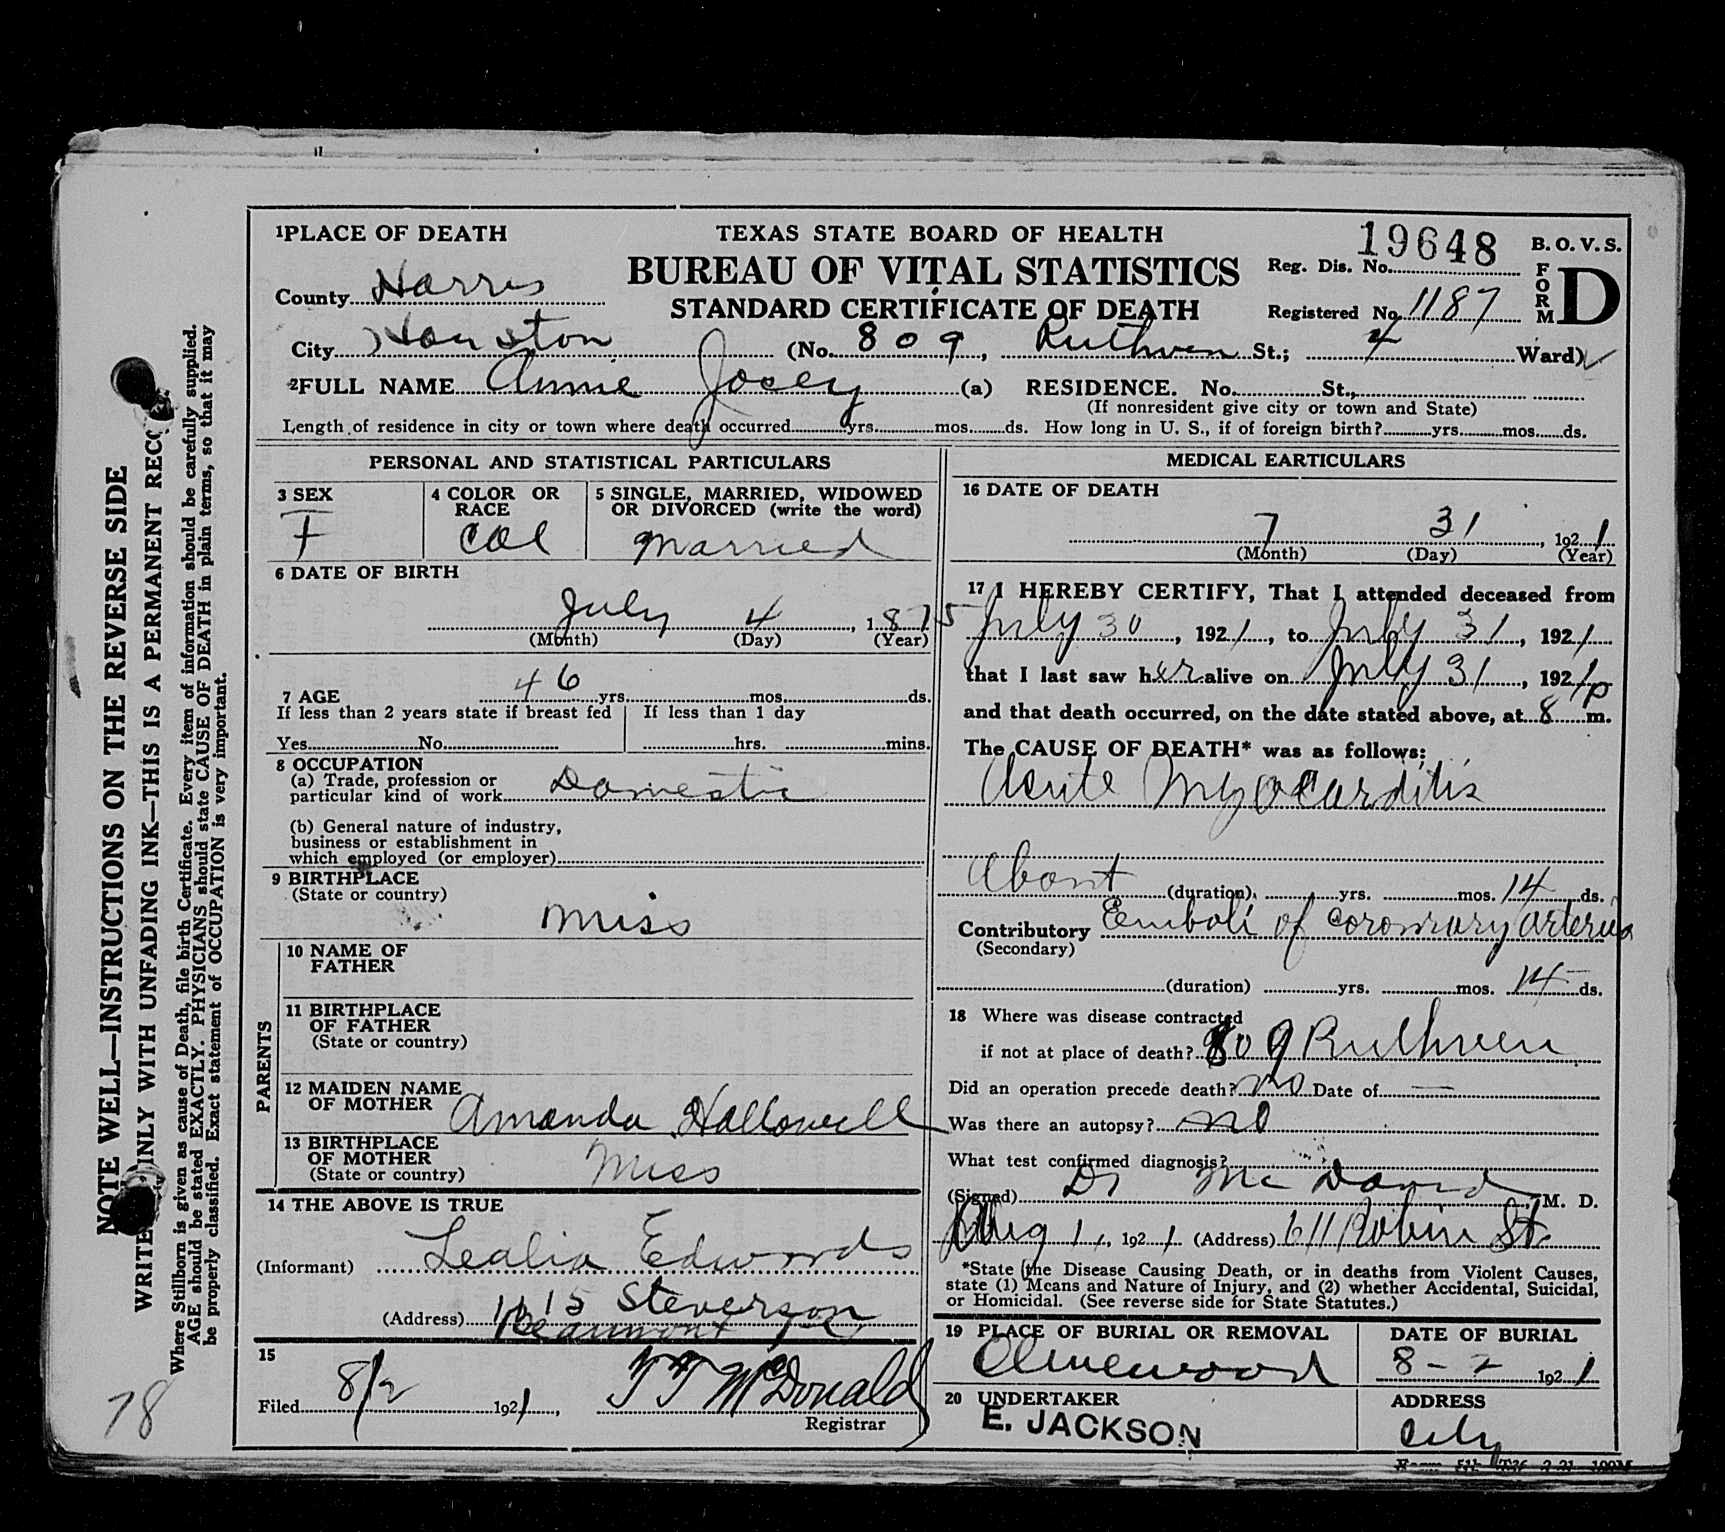 1 PLACE OF DEATH
TEXAS STATE BOARD OF HEALTH
BUREAU OF VITAL STATISTICS
STANDARD CERTIFICATE OF DEATH
Reg. Dis. No. 19648
Registered No. 1187
B. O. V. S.
FORM D
County Harris
City Houston (No. 809, Ruthven St.; 4 Ward)
2 FULL NAME Annie Josey (a) RESIDENCE. No. St.,
(If nonresident give city or town and State)
Length of residence in city or town where death occurred yrs. mos. ds. How long in U. S., if of foreign birth? yrs. mos. ds.
PERSONAL AND STATISTICAL PARTICULARS
3 SEX
F
4 COLOR OR RACE
Col
5 SINGLE, MARRIED, WIDOWED
OR DIVORCED (write the word)
Married
6 DATE OF BIRTH
July 4, 1875
(Month) (Day) (Year)
7 AGE 46 yrs. mos. ds.
If less than 2 years state if breast fed
If less than 1 day
Yes No
hrs. mins.
8 OCCUPATION
(a) Trade, profession or
particular kind of work Domestic
(b) General nature of industry,
business or establishment in
which employed (or employer)
9 BIRTHPLACE
(State or country)
Miss
PARENTS
10 NAME OF
FATHER
11 BIRTHPLACE
OF FATHER
(State or country)
12 MAIDEN NAME
OF MOTHER Amanda Hallowell
13 BIRTHPLACE
OF MOTHER
(State or country) Miss
14 THE ABOVE IS TRUE
(Informant) Lealia Edwords
(Address) 1615 Steverson
Beaumont Tex
15
Filed 8/2 1921, T T McDonald
Registrar
MEDICAL EARTICULARS
16 DATE OF DEATH
7 31, 1921
(Month) (Day) (Year)
17 I HEREBY CERTIFY, That I attended deceased from
July 30, 1921, to July 31, 1921
that I last saw her alive on July 31, 1921
and that death occurred, on the date stated above, at 8 p m.
The CAUSE OF DEATH* was as follows:
Acute Myocarditis
About (duration) yrs. mos. 14 ds.
Contributory Emboli of coronary arteries
(Secondary)
(duration) yrs. mos. 14 ds.
18 Where was disease contracted
if not at place of death? 809 Ruthven
Did an operation precede death? no Date of —
Was there an autopsy? no
What test confirmed diagnosis?
(Signed) Dr McDavid, M. D.
Aug 1, 1921 (Address) 611 Robin St.
*State the Disease Causing Death, or in deaths from Violent Causes,
state (1) Means and Nature of Injury, and (2) whether Accidental, Suicidal,
or Homicidal. (See reverse side for State Statutes.)
19 PLACE OF BURIAL OR REMOVAL
Olivewood
DATE OF BURIAL
8 - 2 1921
20 UNDERTAKER
E. JACKSON
ADDRESS
City
NOTE WELL—INSTRUCTIONS ON THE REVERSE SIDE
WRITE INLY WITH UNFADING INK—THIS IS A PERMANENT RECO
Where Stillborn is given as cause of Death, file birth Certificate. Every item of information should be carefully supplied.
AGE should be stated EXACTLY. PHYSICIANS should state CAUSE OF DEATH in plain terms, so that it may
be properly classified. Exact statement of OCCUPATION is very important.
78